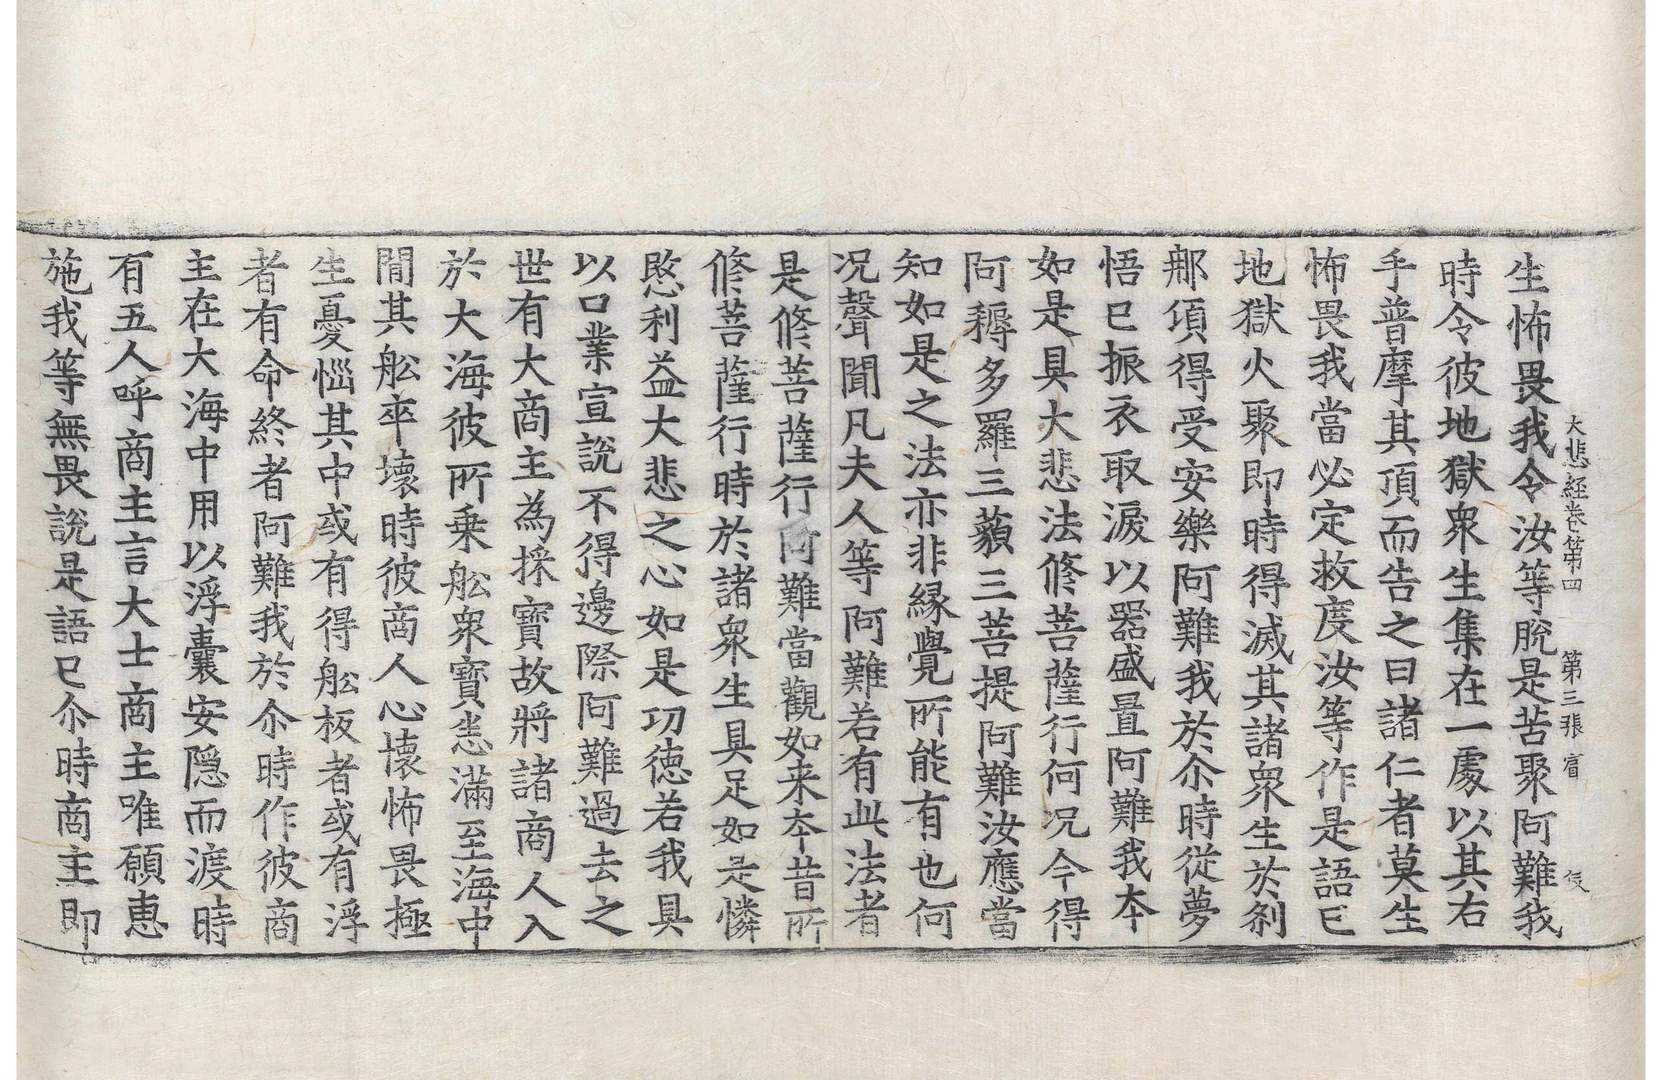 大悲經卷第四　第三張　賓
生怖畏我令汝等脫是苦聚阿難我
時令彼地獄衆生集在一處以其右
手普摩其頂而告之曰諸仁者莫生
怖畏我當必定救度汝等作是語已
地獄火聚即時得滅其諸衆生於剎
那頃得受安樂阿難我於尒時從夢
悟已振衣取淚以器盛置阿難我本
如是具大悲法修菩薩行何况今得
阿耨多羅三藐三菩提阿難汝應當
知如是之法亦非緣覺所能有也何
况聲聞凡夫人等阿難若有此法者
是修菩薩行阿難當觀如来夲昔所
修菩薩行時於諸衆生具足如是憐
愍利益大悲之心如是㓛徳若我具
以口業宣說不得邊際阿難過去之
世有大商主為採寶故將諸商人入
於大海彼所乗舩衆寶悉滿至海中
閒其舩卒壞時彼商人心懷怖畏極
生憂惱其中或有得舩板者或有浮
者有命終者阿難我於尒時作彼商
主在大海中用以浮囊安隱而渡時
有五人呼商主言大士商主唯願惠
施我等無畏說是語已尒時商主即